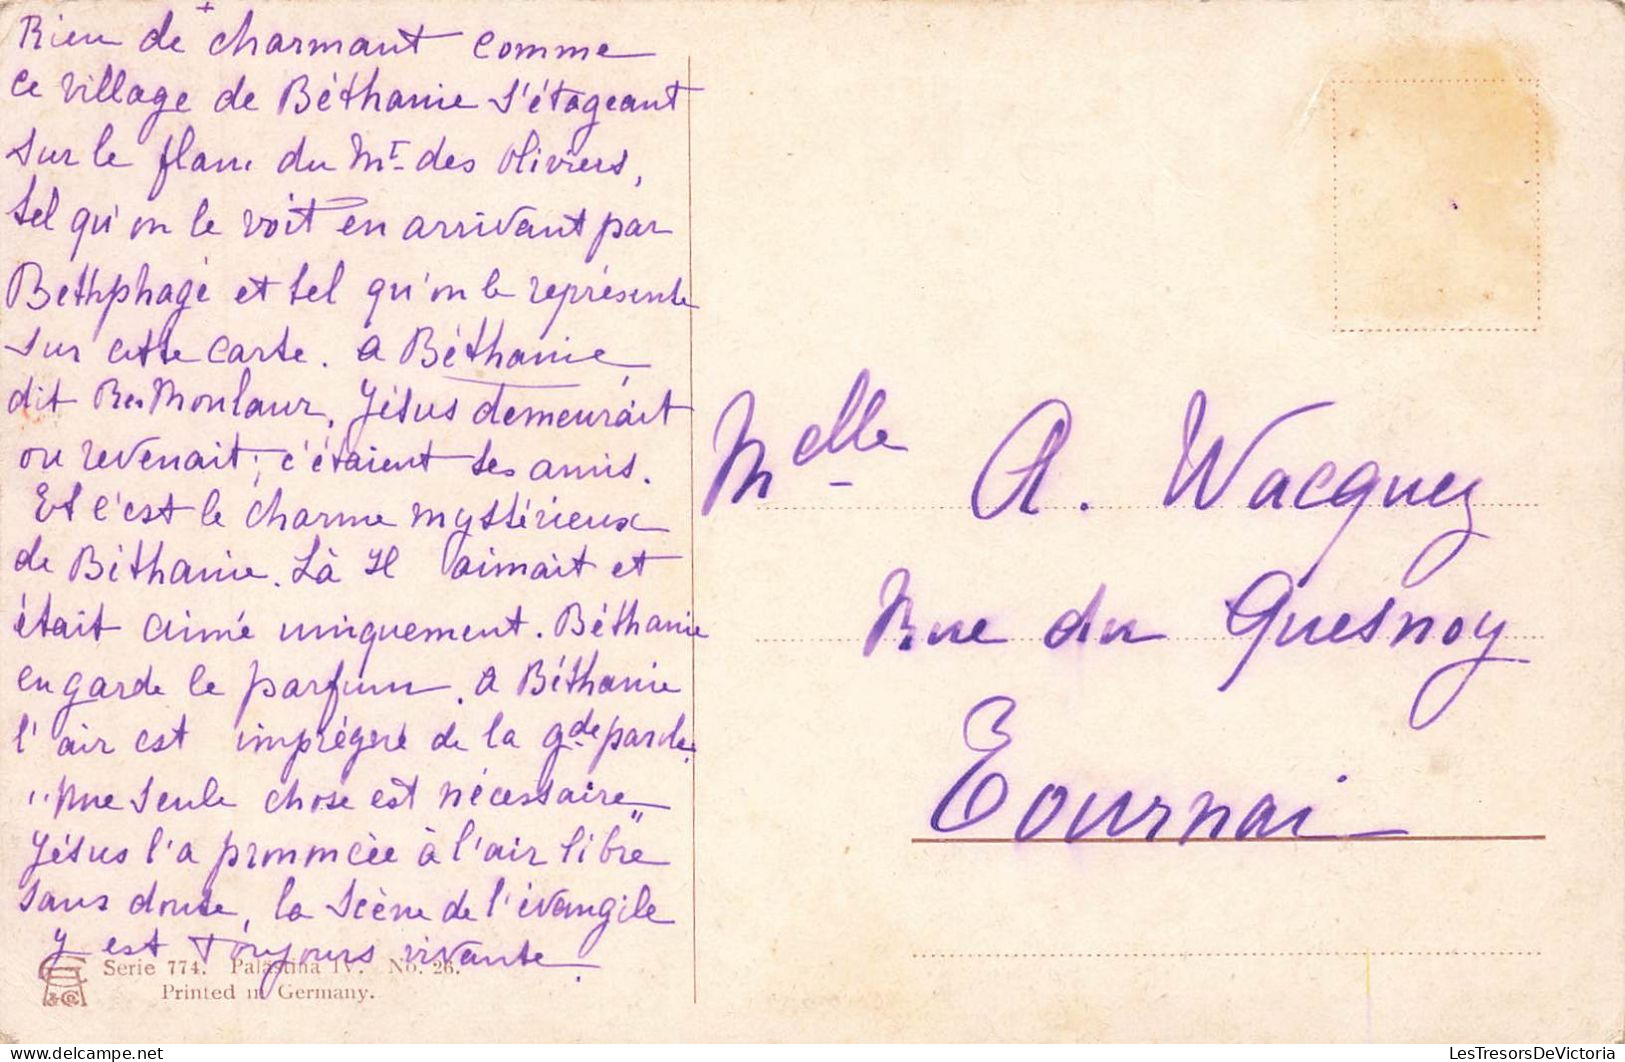 +
Rien de charmant comme
ce village de Béthanie s'étageant
sur le flanc du Mt des Oliviers,
tel qu'on le voit en arrivant par
Bethphagé et tel qu'on le représente
sur cette carte. a Béthanie,
dit Monlaur, Jésus demeurait
ou revenait; c'étaient ses amis.
Et c'est le charme mystérieux
de Béthanie. Là Il aimait et
était aimé uniquement. Béthanie
en garde le parfum. a Béthanie
l'air est imprégné de la gde parole
"une seule chose est nécessaire"
Jésus l'a prononcée à l'air libre
sans doute, la scène de l'évangile
y est toujours vivante.
Serie 774. Palästina IV. No. 26.
Printed in Germany.
Melle A. Wacquez
Rue du Quesnoy
Tournai
LesTresorsDeVictoria